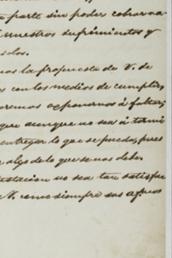 parte sin poder cobrar na
nuestros sufrimientos y
solos.
mos la propuesta de V. de
con los medios de cumplir,
oremos exponernos á faltar;
que aunque no sea á térmi
entregar lo que se pueda, pues
algo de lo que se nos debe.
testacion no sea tan satisfac
V. como siempre sus afmos